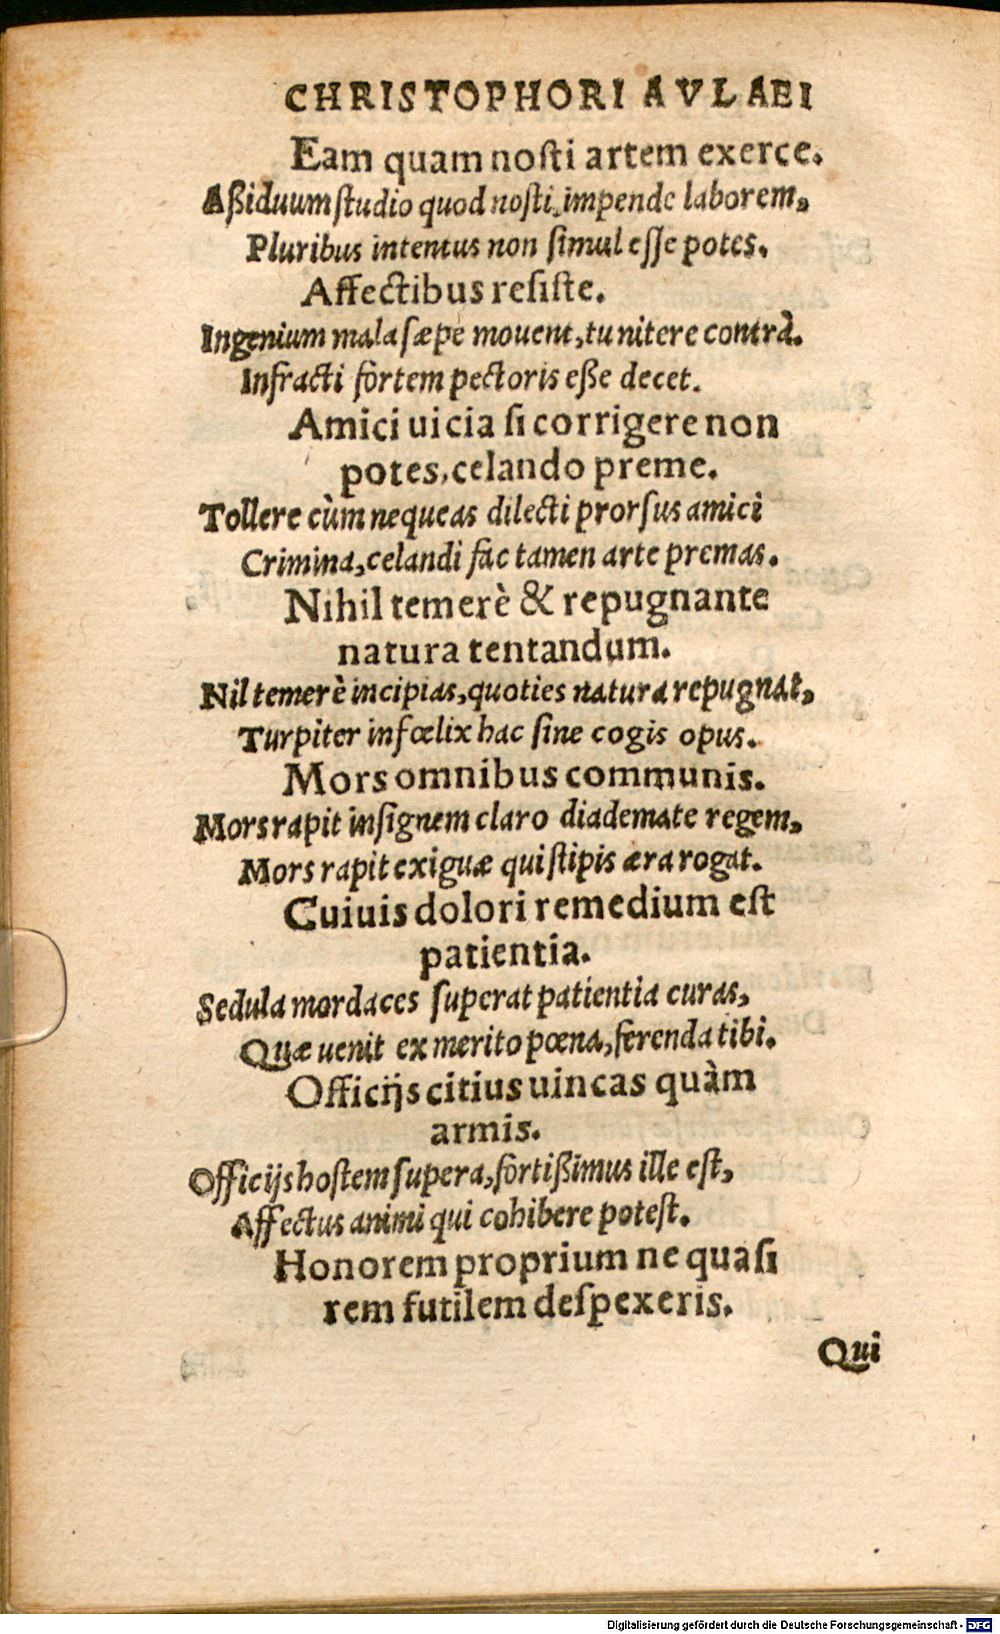 CHRISTOPHORI AVLAEI
Eam quam noſti artem exerce.
Aßiduum ſtudio quod noſti, impende laborem,
Pluribus intentus non ſimul eſſe potes.
Affectibus reſiſte.
Ingenium mala ſæpe mouent, tu nitere contrà.
Infracti fortem pectoris eße decet.
Amici uicia ſi corrigere non
potes, celando preme.
Tollere cùm nequeas dilecti prorſus amici
Crimina, celandi fac tamen arte premas.
Nihil temerè & repugnante
natura tentandum.
Nil temerè incipias, quoties natura repugnat,
Turpiter infœlix hac ſine cogis opus.
Mors omnibus communis.
Mors rapit inſignem claro diademate regem,
Mors rapit exiguæ qui ſtipis æra rogat.
Cuiuis dolori remedium eſt
patientia.
Sedula mordaces ſuperat patientia curas,
Quæ uenit ex merito pœna, ferenda tibi.
Officijs citius uincas quàm
armis.
Officijs hoſtem ſupera, fortißimus ille eſt,
Affectus animi qui cohibere poteſt.
Honorem proprium ne quaſi
rem futilem deſpexeris.
Qui
Digitalisierung gefördert durch die Deutsche Forschungsgemeinschaft - DFG